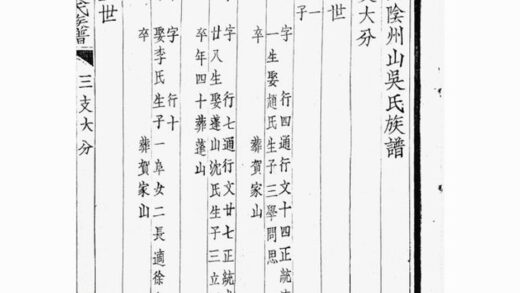 陰州山吳氏族譜
大分
世
子一
字 行四通行文十四正統
一生娶趙氏生子三學問思
卒 葬賀家山
字 行七通行文廿七正統
廿八生娶蓬山沈氏生子三立
卒年四十葬蓬山
字 行十
娶李氏生子一阜女二長適徐
卒 葬賀家山
世
氏族譜
三支大分